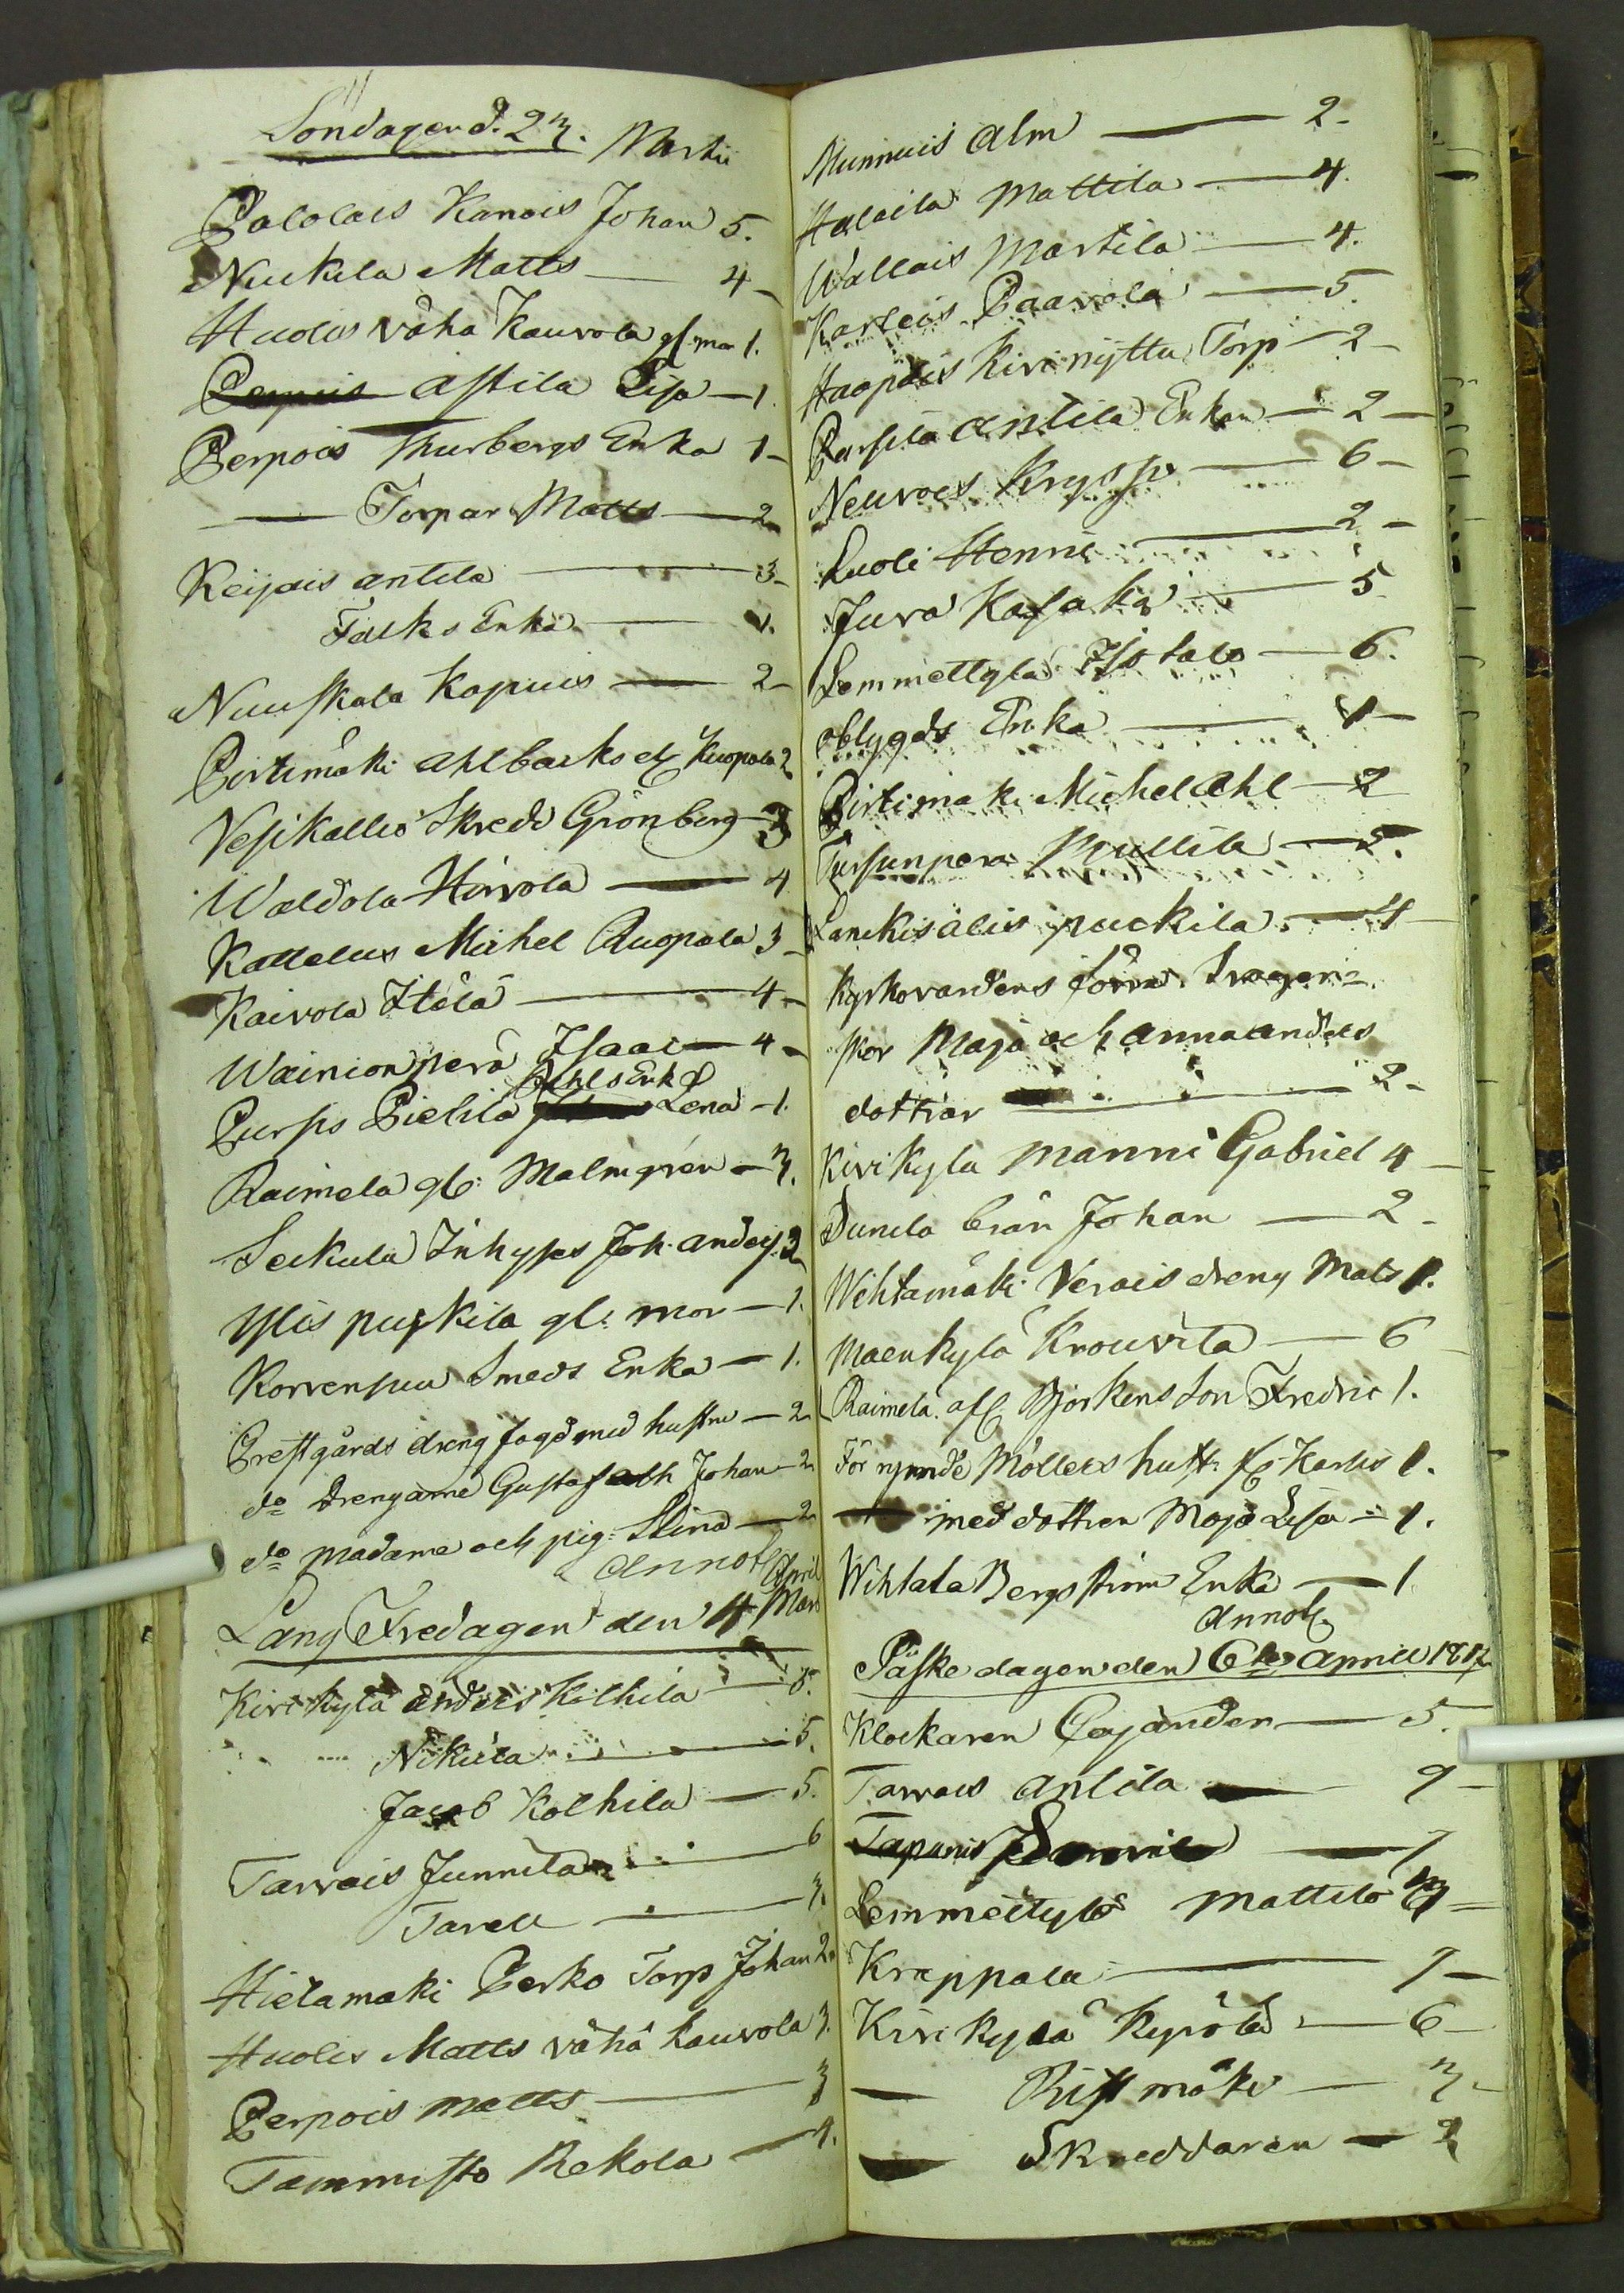 Söndagen d. 23. Martii
Palolais Kanois Johan 5.
Nuckila Matts — 4 -
Huolis vähä Kauvola gl. mor 1.
astila Lisa — 1.
Perpois Thurbergs Enka 1 -
— Torpar Matts — 2
Keijais antila — 3 -
Falks Enka — 1.
Nuuskala Kopuis — 2 -
Pirtimäki ahlbacks Kuopala 2
Vesikallio Skredd Grönberg — 3
Waldola Hirvola — 4
Kattelus Michel Ruopala 3 -
Kaivola Itälä — 4 -
Wainionperä Isaac — 4 -
Ahls Enk
Pursis Pietila Lena — 1.
Raimela gl: Malmgren — 3.
Seikula Inhyses Joh. anders. 2
Ylis puckila gl: mor — 1.
Korvenpuu Smeds Enka — 1.
Prestgårds dreng Jagd med hustru — 2
do drengarne Gustaf och Johan — 2
do madame och pig: Stina — 2
Annot
April
Lang Fredagen den 4 Mars
Kirckylä anders Kilhila — 8.
Nikula — 5.
Jacob Kolhila — 5.
Tarvais Junnila — 6
Tavell — 3.
Hietamaki Perko Torp Johan 2.
Huolis Matts vähä kauvola 3.
Perpois matts — 3
Tammisto Rekola — 4.
Munnuis Alm — 2 -
Halaila Mattila — 4.
Wallais Martila — 4.
Karleis Paavola — 5.
Haapois Kirinyttu Torp — 2 -
Pursila antila Enkan — 2 -
Neuvois Krysp — 6 -
Luoli Henni — 2 -
Juva Kasaka — 5
Lemmettylä Isotalo — 6.
oblygds Enka — 1 -
Pirtimaki Michel Ahl — 2
Tursunpera Mullila — 5.
Lanckis alis puckila — 4
Kyrkovardens förra Svägers-
kor Maja och anna anders
dottrar — 2 -
Kirikyla Manni Gabriel 4 -
Dunila brän Johan — 2 -
Wihtamäki Verais dreng Mats 1.
Maenkylä Krouvila — 6
Raimela afl Björkens Son Fredric 1.
Förrymde Möllers hust: fr Karlis 1.
— med dottren Maja Lisa — 1.
Wihlala Bergström Enka — 1.
Annot
Påske dagen den 6te Aprill 1817
Klockaren Cajander — 5.
Tarvais antila — 9 -
Tapanis — 7
Lemmettylä Mattila
Krappala — 7 -
Kirikyla Kyrölä — 6 -
— Ristimäki — 3 -
— Skreddaren — 2